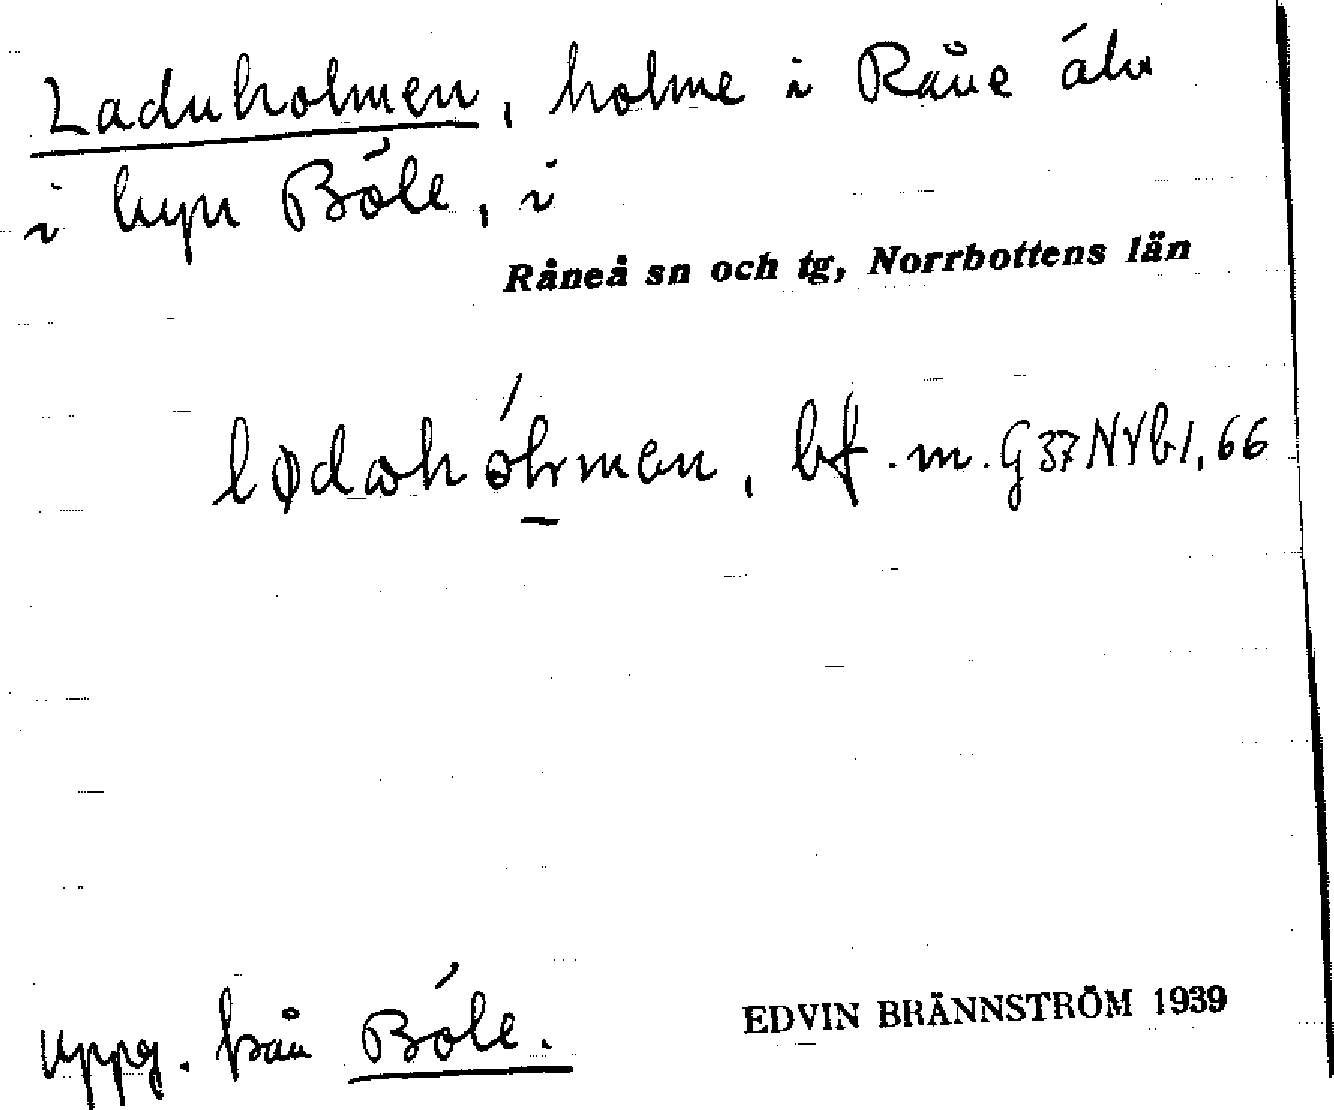 Laduholmen, holme i Råne älv
i byn Böle, i
Råneå sn och tg, Norrbottens län
bf. m. G37NYb1,66
Uppg. från Böle.
EDVIN BRÄNNSTRÖM 1939